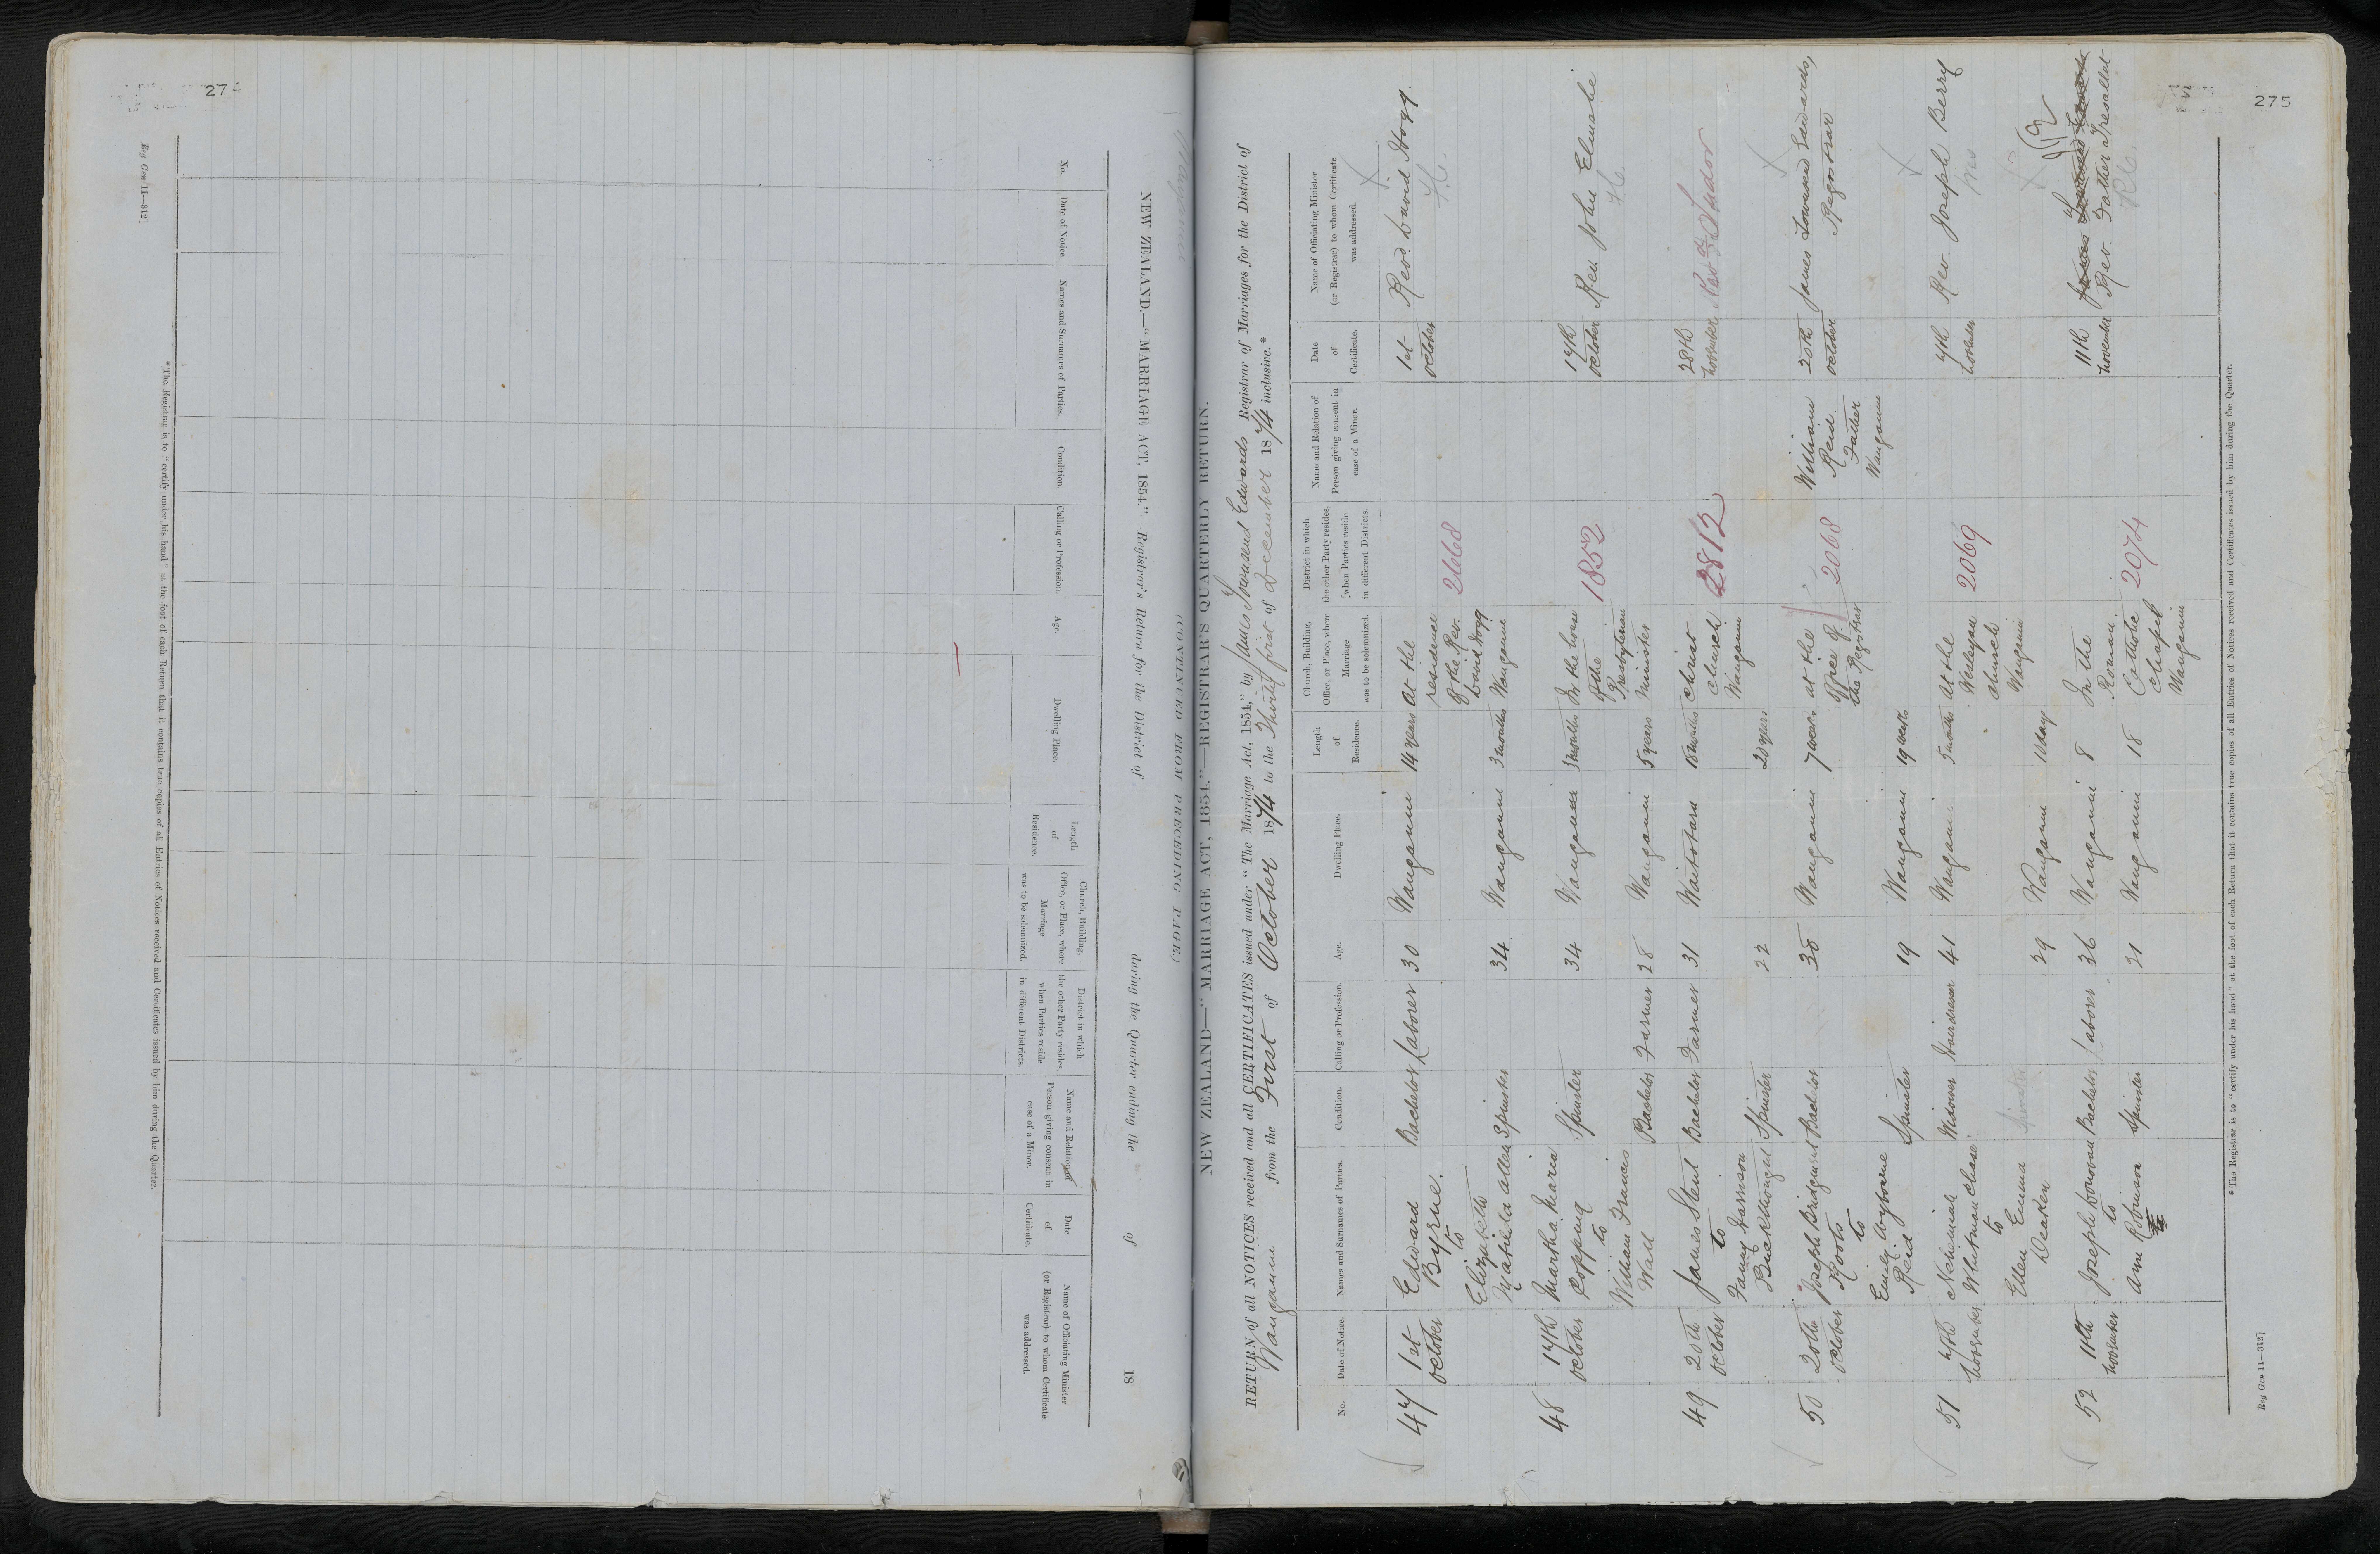 274
Reg Gen 11—312]
NEW ZEALAND.—"MARRIAGE ACT, 1854."—Registrar's Return for the District of
during the Quarter ending the
of
18
(CONTINUED FROM PRECEDING PAGE.)
No.
Date of Notice.
Names and Surnames of Parties.
Condition.
Calling or Profession.
Age.
Dwelling Place.
Length
of
Residence.
Church, Building,
Office, or Place, where
Marriage
was to be solemnized.
District in which
the other Party resides,
when Parties reside
in different Districts.
Name and Relation of
Person giving consent in
case of a Minor.
Date
of
Certificate.
Name of Officiating Minister
(or Registrar) to whom Certificate
was addressed.
* The Registrar is to "certify under his hand" at the foot of each Return that it contains true copies of all Entries of Notices received and Certificates issued by him during the Quarter.
275
NEW ZEALAND—"MARRIAGE ACT, 1854."—REGISTRAR'S QUARTERLY RETURN.
RETURN of all NOTICES received and all CERTIFICATES issued under "The Marriage Act, 1854," by James Townsend Edwards Registrar of Marriages for the District of
Wanganui from the First of October 1874 to the Thirty first of December 1874 inclusive.*
No.
Date of Notice.
Names and Surnames of Parties.
Condition.
Calling or Profession.
Age.
Dwelling Place.
Length
of
Residence.
Church, Building,
Office, or Place, where
Marriage
was to be solemnized.
District in which
the other Party resides,
when Parties reside
in different Districts.
Name and Relation of
Person giving consent in
case of a Minor.
Date
of
Certificate.
Name of Officiating Minister
(or Registrar) to whom Certificate
was addressed.
47
1st
October
Edward
Byrne
to
Elizabeth
Matilda Allen
Bachelor
Spinster
Laborer
30
34
Wanganui
Wanganui
14 years
3 months
At the
residence
of the Rev.
David Hogg
Wanganui
2668
1st
October
Revd. David Hogg.
48
17th
October
Martha Maria
Copping
to
William Francis
Wall
Spinster
Bachelor
Farmer
34
28
Wanganui
Wanganui
3 months
5 years
In the house
of the
Presbyterian
Minister
1852
17th
October
Rev. John Elmslie
49
20th
October
James Stent
to
Fanny Harrison
Buckthought
Bachelor
Spinster
Farmer
31
22
Waitotara
18 months
20 years
Christ
Church
Wanganui
2812
28th
November
Revd Tudor
50
20th
October
Joseph Bridgement
Roots
to
Emily Wyborne
Reid
Bachelor
Spinster
19
Wanganui
Wanganui
7 years
19 years
at the
office of
the Registrar
2068
William
Reid
Father
Wanganui
20th
October
James Townsend Edwards,
Registrar
51
7th
November
Nehemiah
Whitman Chase
to
Ellen Emma
Deaken
Widower
Spinster
Hairdresser
41
29
Wanganui
Wanganui
5 months
At the
Wesleyan
Church
Wanganui
2069
7th
November
Rev. Joseph Berry
Wes
52
11th
November
Joseph Donovan
to
Ann Robinson
Bachelor
Spinster
Laborer
36
21
Wanganui
Wanganui
8
18
In the
Roman
Catholic
Chapel
Wanganui
2074
11th
November
James Townsend Edwards
Rev. Father Tresallet
R.C.
* The Registrar is to "certify under his hand" at the foot of each Return that it contains true copies of all Entries of Notices received and Certificates issued by him during the Quarter.
Reg Gen 11—312]